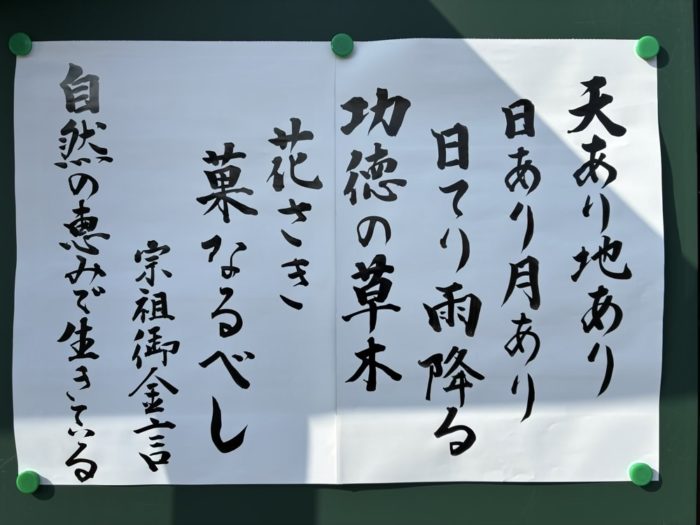 天あり地あり
日あり月あり
日てり雨降る
功徳の草木
花さき
菓なるべし
宗祖御金言
自然の恵みで生きている